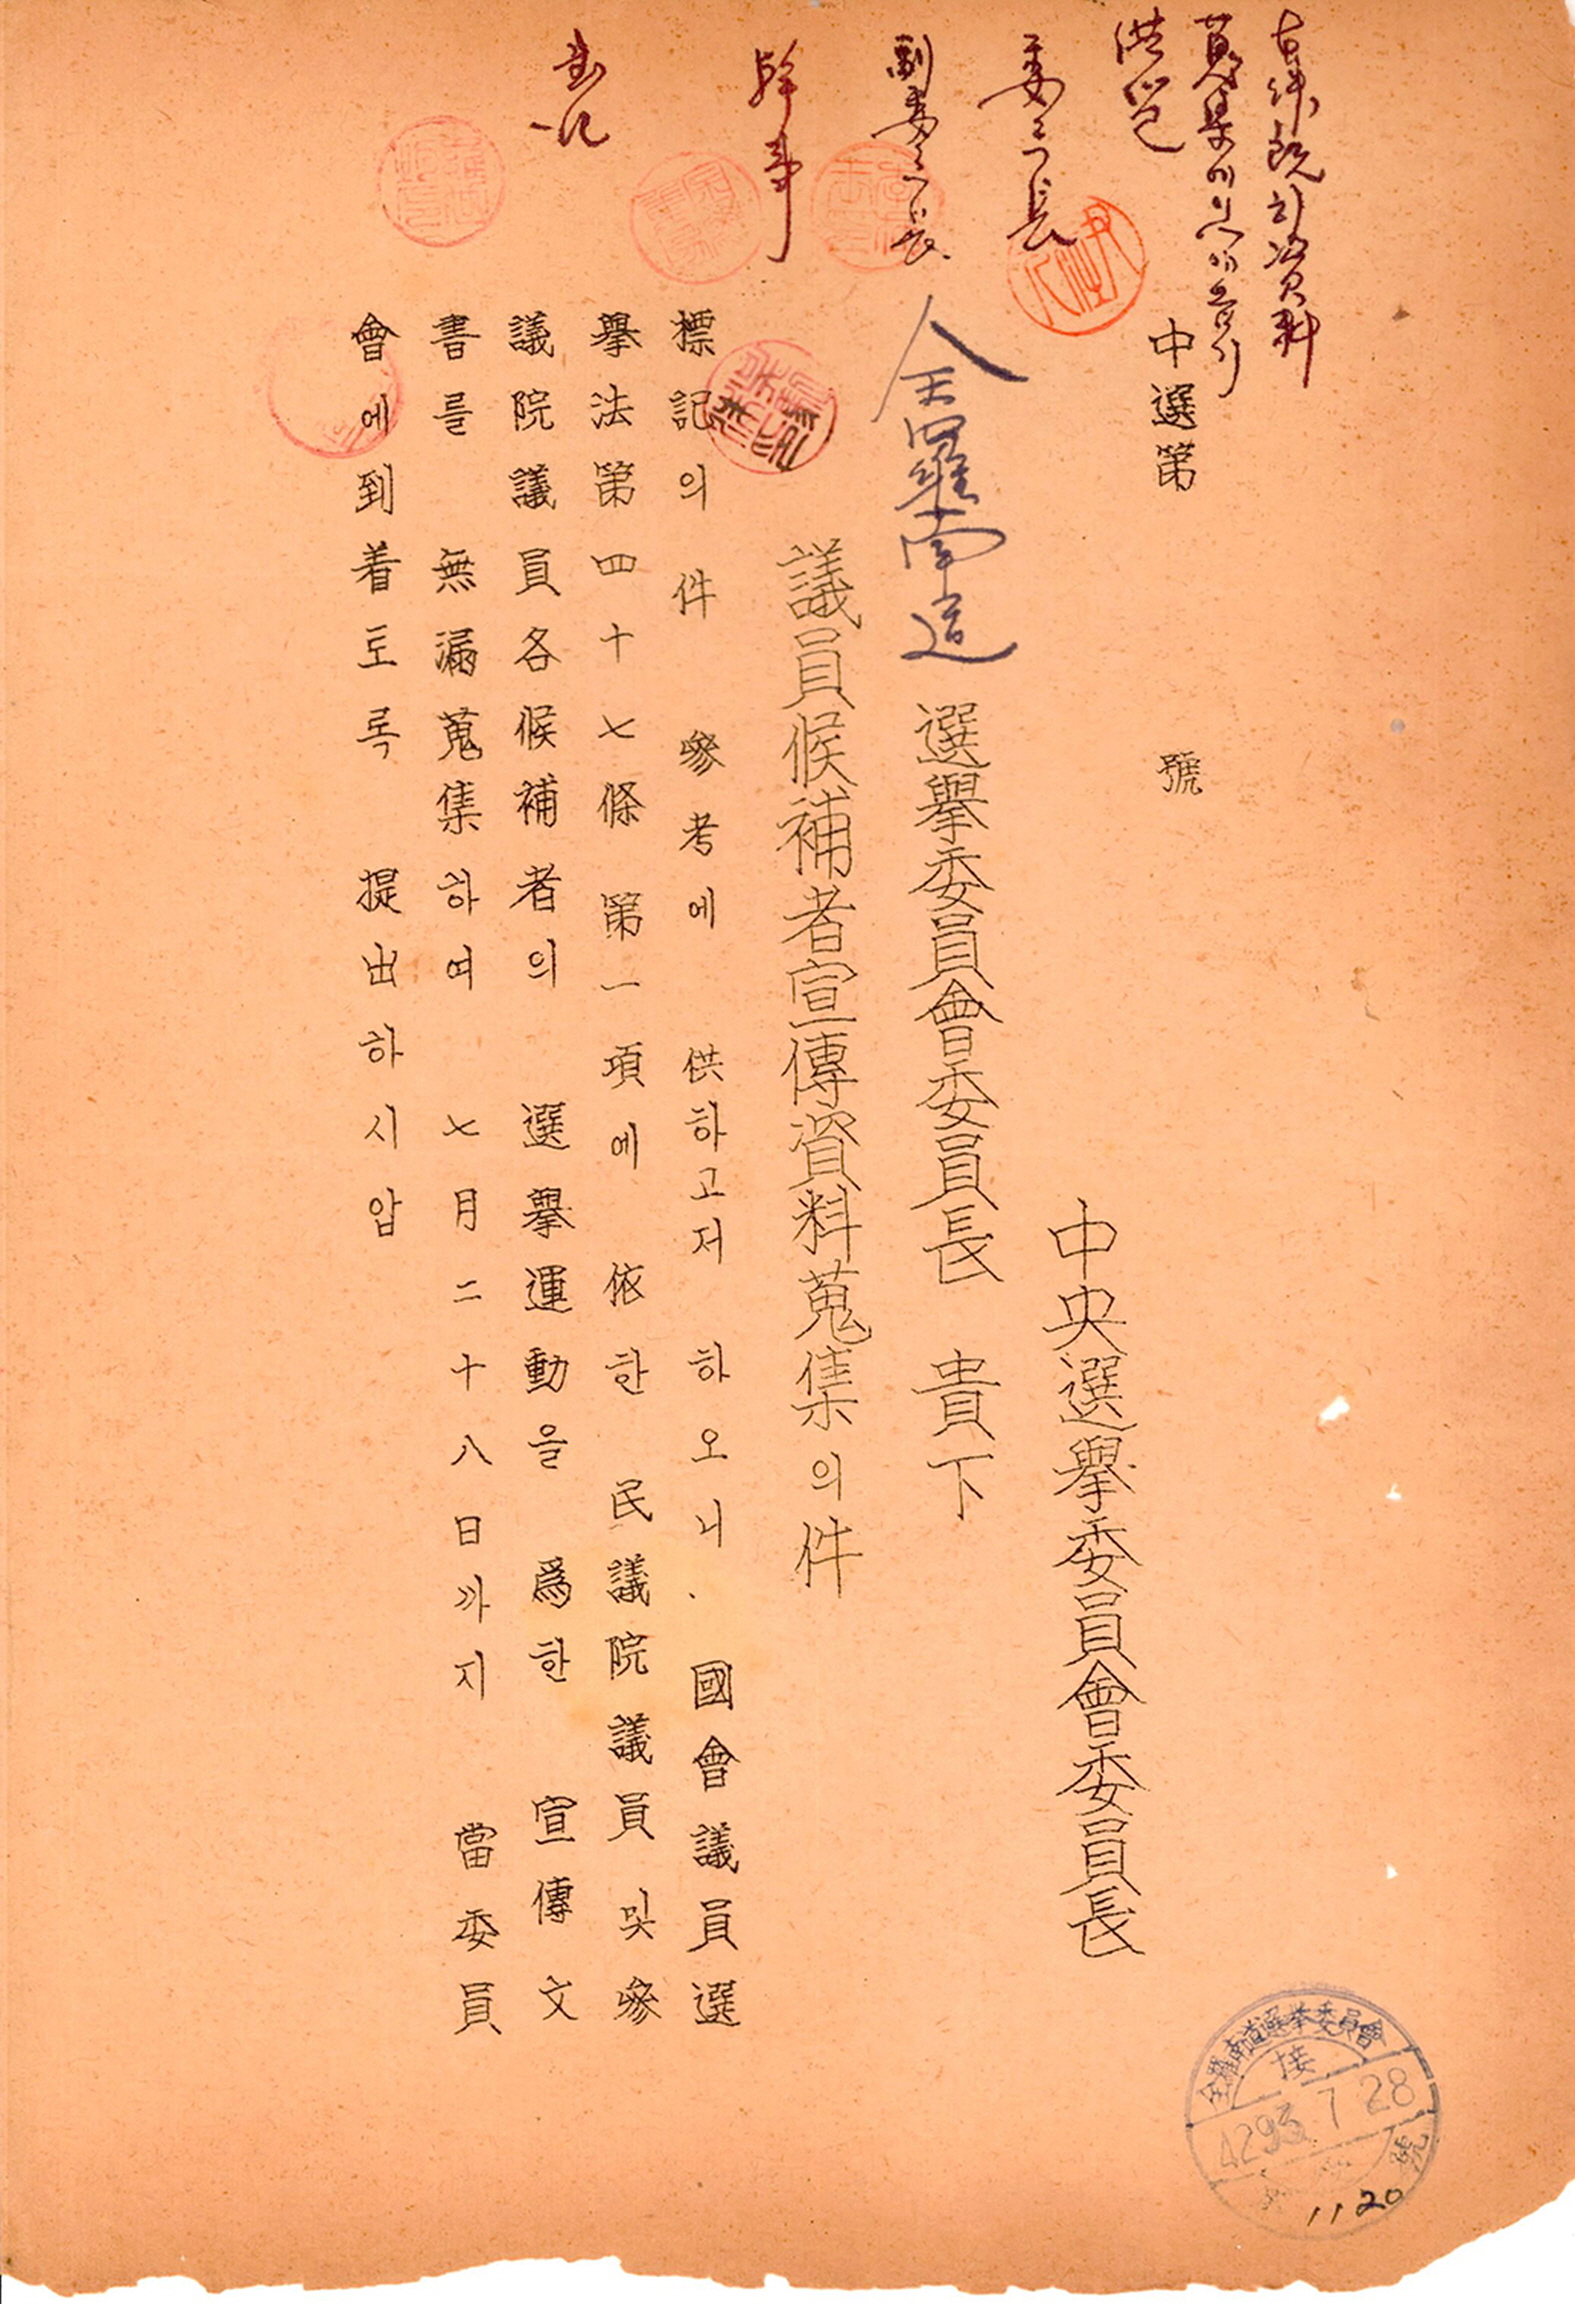 右件 既히 資料
蒐集에
供覽
委員長
副委員長
幹事
書記
中選第 號
中央選擧委員會委員長
全羅南道 選擧委員會委員長 貴下
議員候補者宣傳資料蒐集의件
標記의 件 參考에 供하고저 하오니. 國會議員選
擧法第四十七條 第一項에 依한 民議院議員 및 參
議院議員各候補者의 選擧運動을 爲한 宣傳文
書를 無漏蒐集하여 七月二十八日까지 當委員
會에到着토록 提出하시압
全羅南道選挙委員會
接
4293 7 28
號
1120